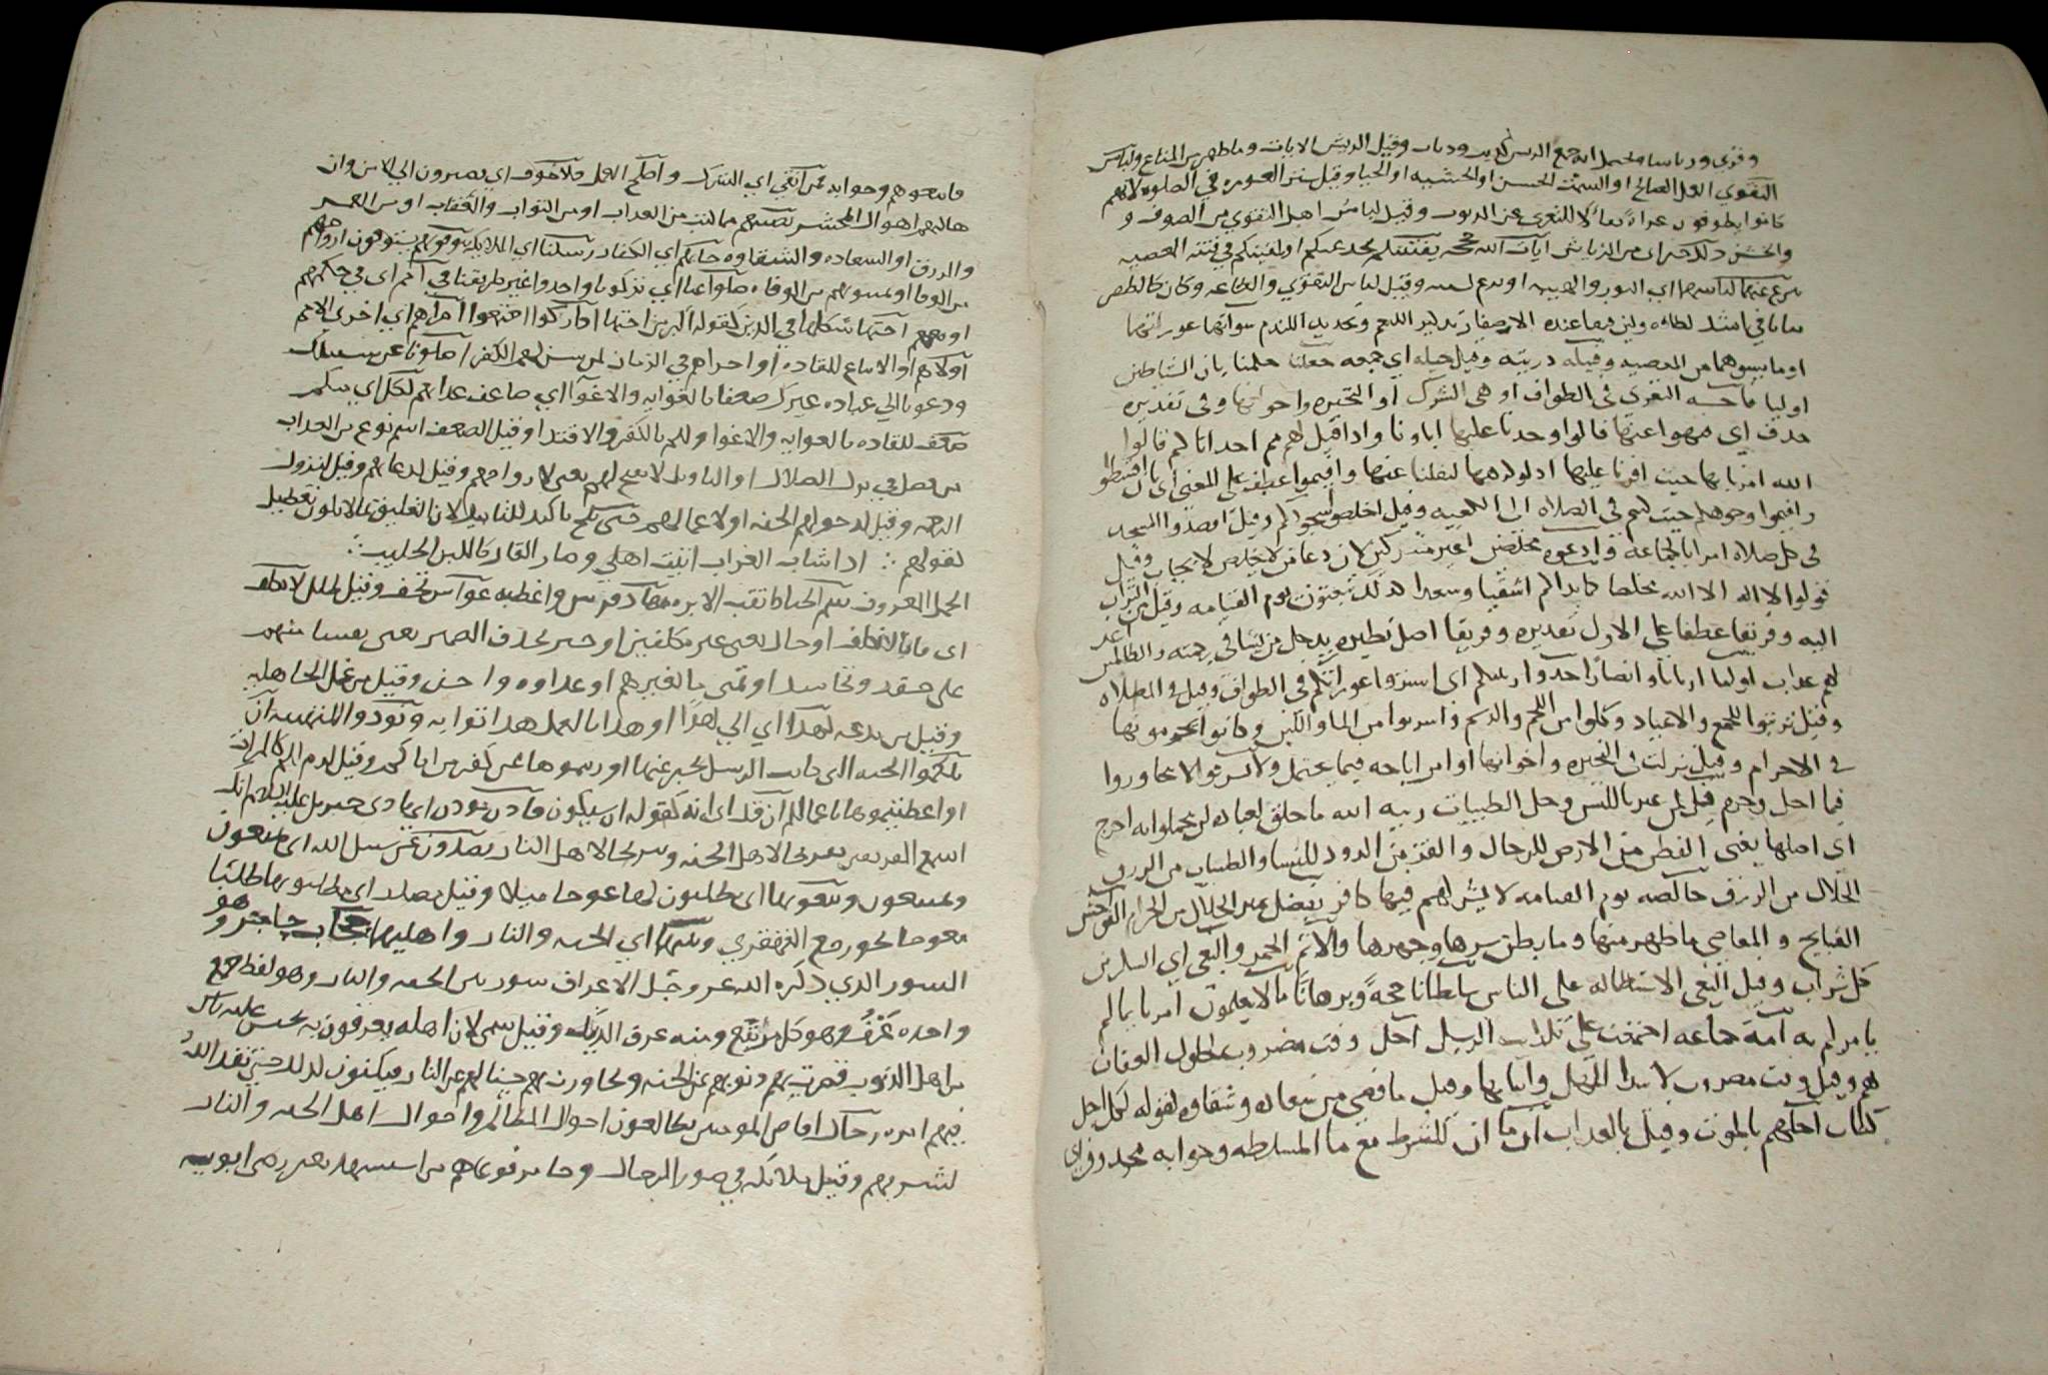 وقرى ورياشا ويحتمل انه جمع الريش وقيل الريش الاثاث وما ظهر من المتاع ولباس
التقوي العمل الصالح او السمت الحسن او الخشيه او الحيا وقيل ستر العوره في الصلوه لانهم
كانوا يطوفون عراة تفاؤلا للتعري عن الذنوب وقيل لباس اهل التقوي من الصوف و
والخشن ذلك خير اى من الرياش ايات الله حججه يفتننكم يخدعنكم او يلقينكم في فتنة المعصيه
ينزع عنهما لباسهما اي النور والهيبه وقيل لباس التقوي والطاعه وكان كالظفر
او ما يسوهما من المعصيه وقبيله ذريته وقيل جيله اي جمعه جعلنا حكمنا بان الشياطين
اوليا فاحشه التعري في الطواف او هي الشرك او البحيره واخواتها وفى تقديره
حذف اي فنهوا عنها قالوا وجدنا عليها اباونا واذا قيل لهم مم اخذ اباكم قالوا
الله امرنا بها حيث اقرنا عليها اذ لو كرهها لنقلنا عنها واقيموا عطف على المعنى اى بان اقسطوا
واقيموا وجوهكم حيث كنتم فى الصلاه الى الكعبه وقيل اخلصوا سجودكم وقيل اقصدوا المسجد
في كل صلاة امرا بالجماعه وادعوه مخلصين غير مشركين لان دعا من لا يخلص لا يجاب وقيل
قولوا لا اله الا الله مخلصا كما بداكم اشقيا وسعدا كذلك تبعثون يوم القيامه وقيل من التراب
اليه وفريقا عطفا على الاول تقديره وفريقا اضل نظيره يدخل من يشا في رحمته والظالمين اعد
لهم عذاب اوليا اربابا وانصارا خذوا زينتكم اى استروا عوراتكم فى الطواف وقيل فى الصلاه
وقيل تزينوا للجمع والاعياد وكلوا من اللحم والدسم واشربوا من الما واللبن وكانوا يحرمونها
فى الاحرام وقيل نزلت فى البحيره واخواتها او امر اباحه فيما يحتمل ولا تسرفوا لا تجاوزوا
فيما احل وحرم قل لمن عير باللبس وحل الطيبات زينه الله ما خلق لعباده لن يحملوا به اخرج
اى اصلها يعنى القطن من الارض للرجال والقز من الدود للنسا والطيبات من الرزق
الحلال من الرزق خالصه يوم القيامه لا يشركهم فيها كافر نفصل نميز الحلال من الحرام الفواحش
القبايح و المعاصي ما ظهر منها وما بطن سرها وجهرها والاثم الخمر والبغي اي السكر من
كل شراب وقيل البغى الاستطاله على الناس سلطانا حجةً وبرهانًا ما لا يعلمون امرنا بما لم
يامر لم به امة جماعه اجتمعت على تكذيب الرسل اجل وقت مضروب لحلول العقاب
لهم وقيل وقت مضروب لابتدا المهل وانتهايها وقيل ما قضى من سعاده وشقاوه لقوله لكل اجل
كتاب اجلهم بالموت وقيل بالعذاب اما ان للشرط مع ما المسلطه وجوابه محذوف اي
فاتبعوهم وجوابه فمن اتقي اي الشرك واصلح العمل فلا خوف اي يصيرون الي الامن وان
هالهم اهوال المحشر نصيبهم مما كتب من العذاب او من الثواب والعقاب او من العمر
والرزق او السعاده والشقاوه جاتهم اي الكفار رسلنا اي الملايكه يتوفونهم يستوفون ارواحهم
من الوفا او يميتونهم من الوفاه ضلوا عنا اي تركونا واخذوا غير طريقنا في امم اى في حكمهم
او معهم اختها شكلها في الدين كقوله اكبر من اختها اداركوا اجتمعوا اخراهم اي اخرى الامم
اولاهم او الاتباع للقاده او اخراهم في الزمان لمن سن لهم الكفر اضلونا عن سبيلك
ودعونا الي عباده غيرك ضعفا بالغوايه والاغوا اي ضاعف عذابهم لكل اي منكم
ضعف للقاده بالغوايه والاغوا ولكم بالكفر والاقتدا وقيل الضعف اسم نوع من العذاب
من فضل في ترك الضلال او التاويل لا تفتح لهم يعنى لارواحهم وقيل لدعايهم وقيل لنزول
الرحمه وقيل لدخولهم الجنه او لاعمالهم حتى يلج تاكيد للتابيد لان التعليق بما لا يكون تعطيل
كقولهم ∴ اذا شاب الغراب اتيت اهلي وصار القار كاللبن الحليب ∴
الجمل المعروف سم الخياط ثقب الابره مهاد فرش واغطيه غواش لحف وقيل ظلل لا نكلف
اى فانا لا نكلف او حال يعنى غير مكلفين او خبر بحذف الضمير يعنى نفسا منهم
غل حقد وتحاسد او تمني ما لغيرهم او عداوه واحن وقيل من غل الجاهليه
وقيل من بدعه لهذا اي الي هذا او هدانا لعمل هذا ثوابه ونودوا المفسره ان
تلكموا الجنه التى كانت الرسل تخبر عنها اورثتموها عمن كفر من اباكم وقيل لدم ابيكم كالميراث
او اعطيتموها باعمالكم ان قد اى انه كقوله ان سيكون فاذن موذن اى نادى جبريل عليه السلام
اسمع الفريقين يعنى نجا لاهل الجنه وخزيا لاهل النار يصدون عن سبيل الله اى يمنعون
ويمتنعون ويبغونها اى يطلبون لها عوجا ميلا وقيل مصدر اى يطلبونها طلبًا
معوجا كرجع القهقري وبينهما اي الجنه والنار واهليهما حجاب حاجز وهو
السور الذي ذكره الله عز وجل الاعراف سور بين الجنه والنار وهو لفظ جمع
واحده عُرْفٌ وهو كل مرتفع ومنه عرف الديك وقيل سمى لان اهله يعرفون به يحبس عليه ناس
من اهل الذنوب قصرت بهم ذنوبهم عن الجنه وتجاوزت بهم حسناتهم عن النار فيكونون كذلك حتى ينفذ الله
فيهم امره رجال افاضل المومنين يطالعون احوال المظالم واحوال اهل الجنه والنار
لشرفهم وقيل ملايكه في صور الرجال وقيل